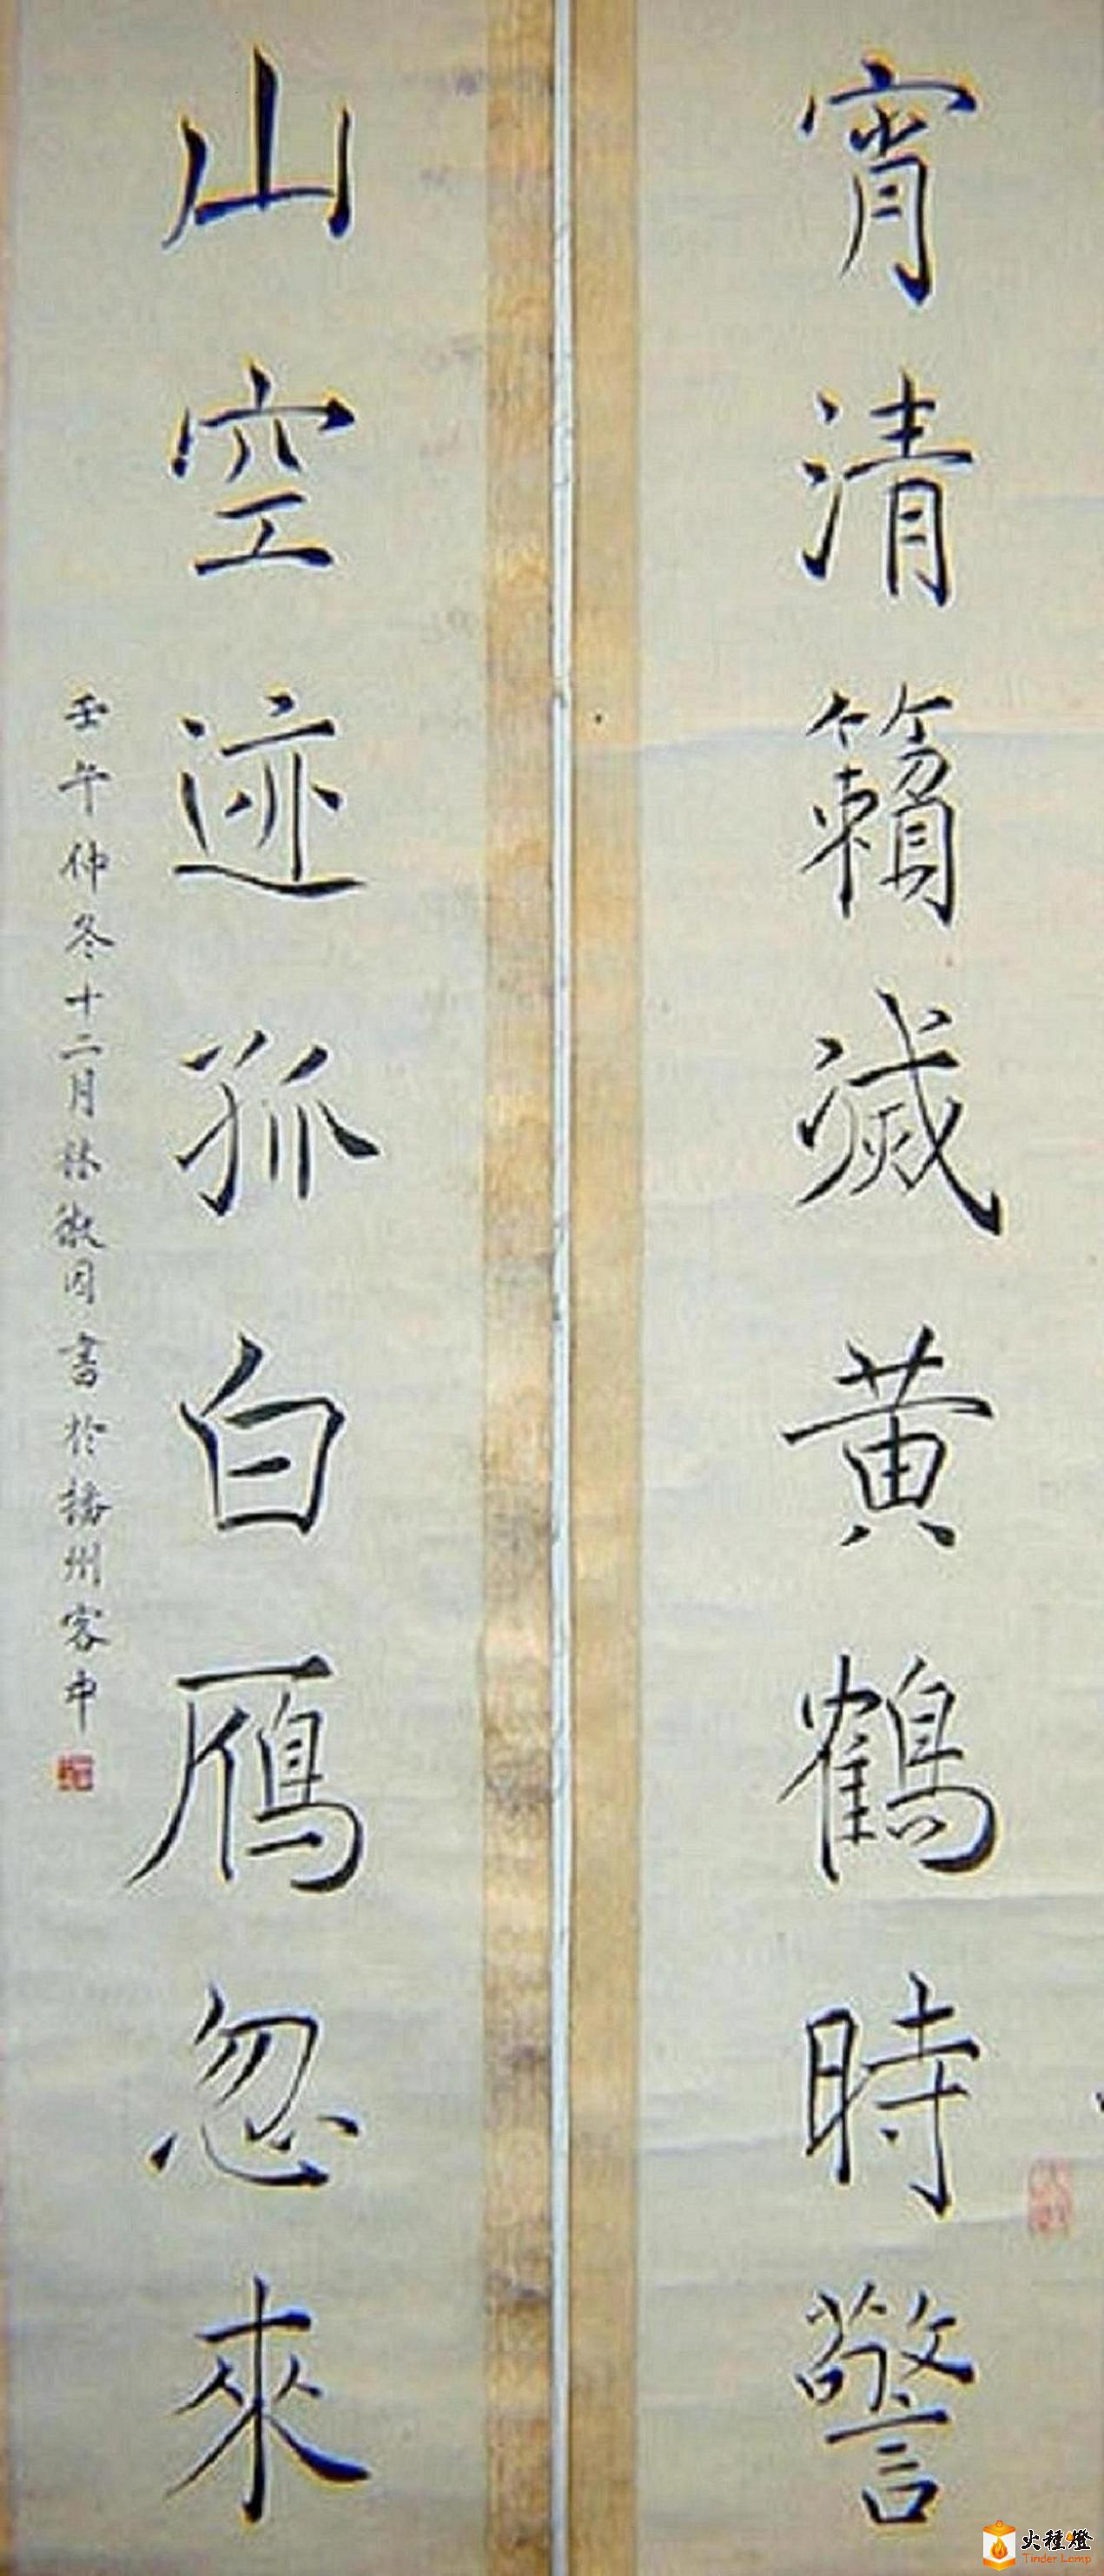 宵清籟滅黄鶴時警
山空迹孤白鴈忽來
壬午仲冬十二月林徽因書於播州客中
火種燈
Tinder Lamp